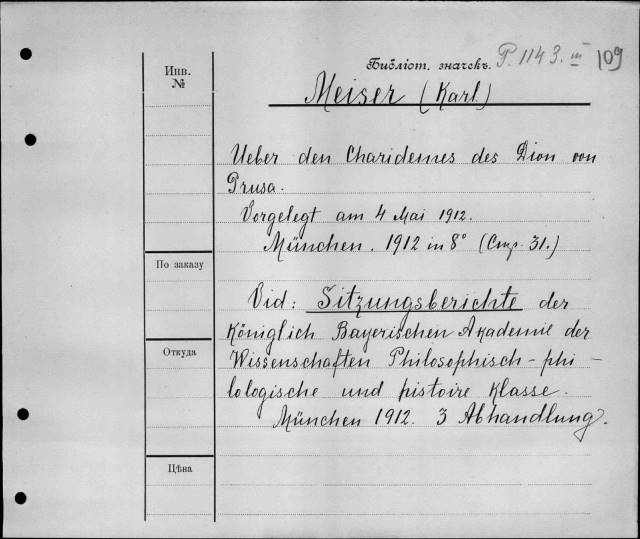 Инв.
№
Библіот. значекъ. P. 1143. III 109
Meiser (Karl.)
Ueber den Charidemes des Dion von
Prusa.
Vorgelegt am 4 Mai 1912.
München. 1912 in 8° (Стр. 31.)
По заказу
Vid: Sitzungsberichte der
Königlich Bayerischen Akademie der
Откуда
Wissenschaften Philosophisch-phi-
lologische und histoire Klasse.
München 1912. 3 Abhandlung.
Цѣна